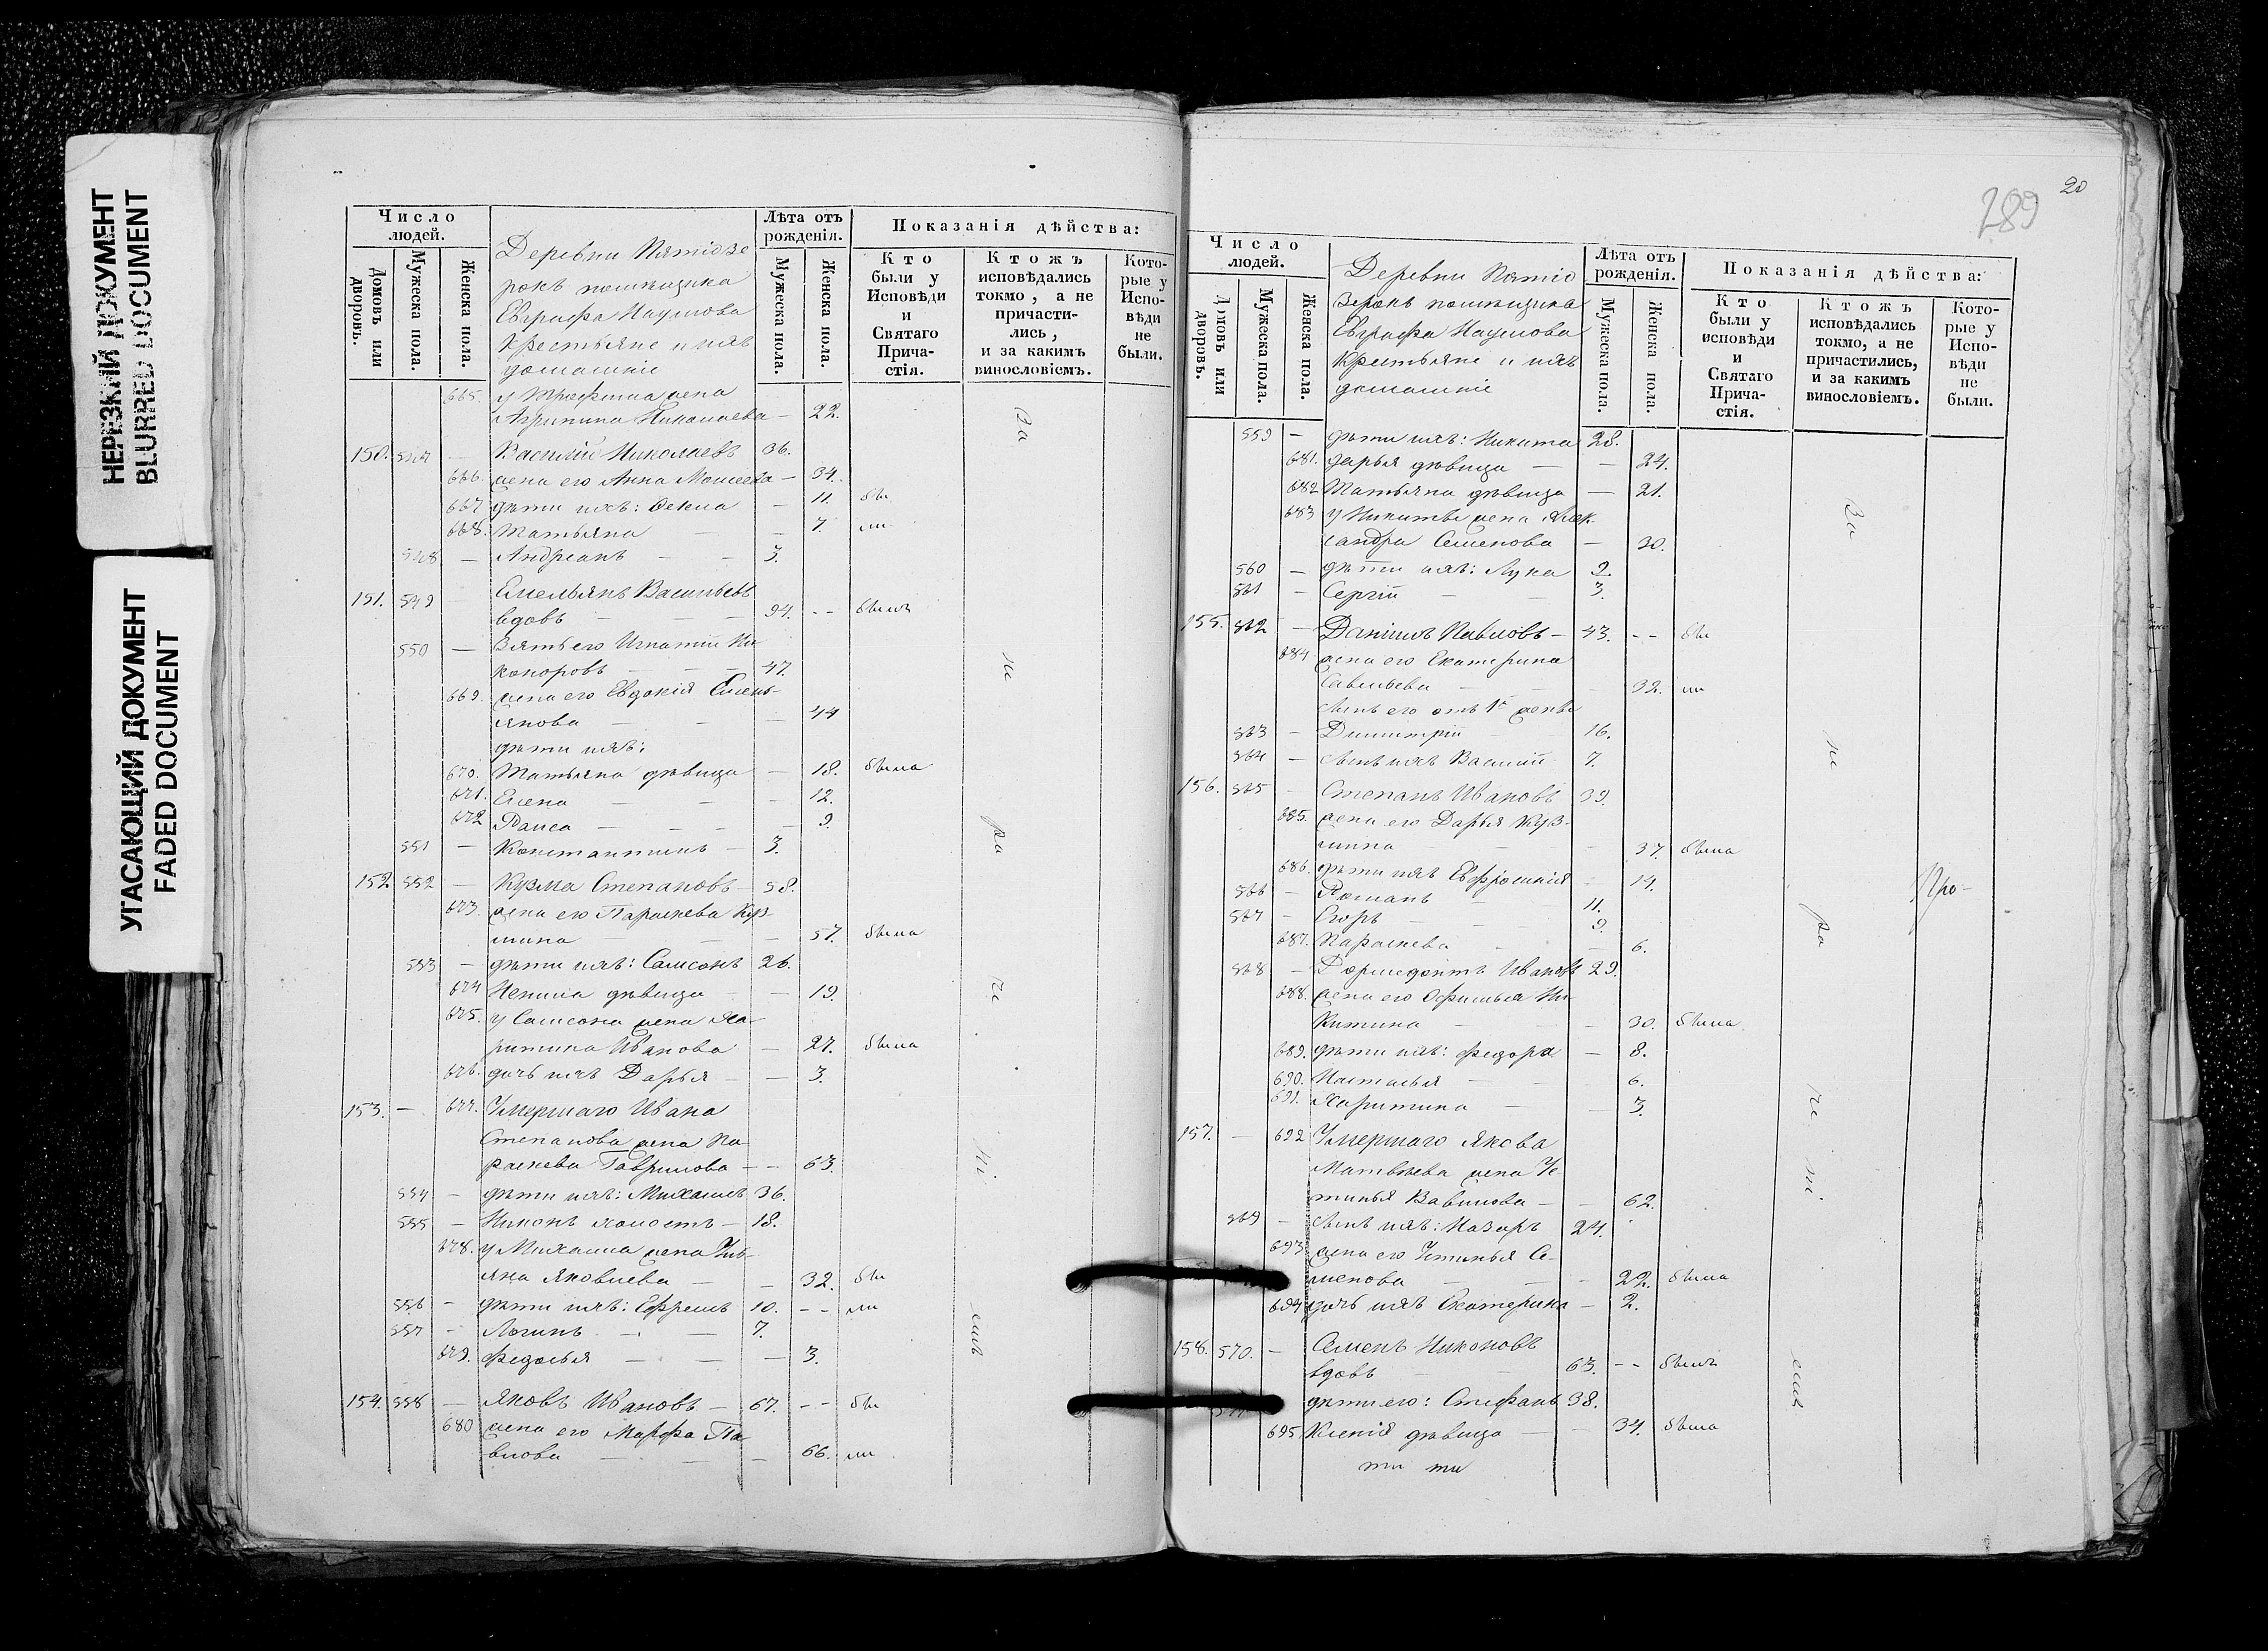 НЕРЕЗКИЙ ДОКУМЕНТ
BLURRED DOCUMENT
УГАСАЮЩИЙ ДОКУМЕНТ
FADED DOCUMENT
Число людей.
Домовъ или дворовъ.
Мужеска пола.
Женска пола.
Деревни Пятіозе
рокъ помѣщика
Евграфа Наумова
крестьяне и ихъ
домашніе
Лѣта отъ рожденія.
Мужеска пола.
Женска пола.
Показанія дѣйства:
Кто были у Исповѣди и Святаго Прича-стія.
Ктожъ исповѣдались токмо, а не причасти-лись, и за какимъ винословіемъ.
Кото-рые у Испо-вѣди не были.
665. у Трифона жена
Агрипина Николаева — 22.
150. 547 — Василій Николаевъ 36.
666. жена его Анна Моисеева — 34.
667 дѣти ихъ: Фекла — 11. бы
668. Татьяна — — 7. ли
548 — Андреанъ — — 3.
151. 549 Емельянъ Васильевъ
вдовъ — — 94. -- былъ
550 — Зять его Игнатій Ни
каноровъ — — — 47.
669. жена его Евдокія Емель-
янова — — — 44
дѣти ихъ:
670. Татьяна дѣвица — 18. была
671. Елена — — — 12.
672 Раиса — — — — 9.
551 — Константинъ — 3.
152 552 — Кузма Степановъ — 58.
673. жена его Параскева Куз-
мина — — — 57. была
553 — дѣти ихъ: Самсонъ 26.
674 Ненила дѣвица — — 19.
675. у Самсона жена Ха-
ритина Иванова — 27. была
676. дочь ихъ Дарья — — 3.
153. — 677. Умершаго Ивана
Степанова жена Па-
раскева Гаврилова — — 63.
554 — дѣти ихъ: Михаилъ 36.
555 — Никонъ холостъ — 18.
678. у Михаила жена Уль-
яна Яковлева — — 32. бы
556 — дѣти ихъ: Ефремъ 10. -- ли
557 — Логинъ — — 7.
679. Федосья — — — 3.
154. 558 — Яковъ Ивановъ — 67. -- бы
680 жена его Марфа Па
влова — — — 66. ли
За
ни
ра
че
ні
емъ
20
289
Число людей.
Домовъ или дворовъ.
Мужеска пола.
Женска пола.
Деревни Пятіо
зерокъ помѣщика
Евграфа Наумова
крестьяне и ихъ
домашніе
Лѣта отъ рожденія.
Мужеска пола.
Женска пола.
Показанія дѣйства:
Кто были у исповѣди и Святаго Прича-стія.
Ктожъ исповѣдались токмо, а не причастились, и за какимъ винословіемъ.
Кото-рые у Испо-вѣди не были.
559 — дѣти ихъ: Никита 28.
681. Дарья дѣвица — — 24.
682 Татьяна дѣвица — 21.
683 у Никиты жена Алек-
сандра Семенова — 30.
560 — дѣти ихъ: Лука 9.
561 — Сергій — — 3.
155. 562 — Даніилъ Павловъ — 43. -- бы
684 жена его Екатерина
Савельева — — 32. ли
сынъ его отъ 1й жены
563 — Димитрій — 16.
564 — сынъ ихъ Василій 7.
156. 565 — Степанъ Ивановъ 39.
685. жена его Дарья Куз-
мина — — — 37. была
686. дѣти ихъ Евфросинія — 14.
566 — Романъ — — 11.
567 — Егоръ — — 9.
687. Параскева — — 6.
568 — Дормедонтъ Ивановъ 29.
688. жена его Офимья Ни-
китина — — 30. была
689. дѣти ихъ: Федора — 8.
690. Наталья — — 6.
691. Харитина — — 3.
157. — 692 Умершаго Якова
Матвѣева жена Ус
тинья Вавилова — — 62.
569 — сынъ ихъ: Назаръ 24.
693 жена его Устинья Се-
менова — — — 22. была
694 дочь ихъ Екатерина — 2.
158. 570. — Семенъ Никоновъ
вдовъ — — 63. -- былъ
дѣти его: Стефанъ 38.
695 Ксенія дѣвица — — 34. была
За
ни
ра
че
ні
емъ
Про-